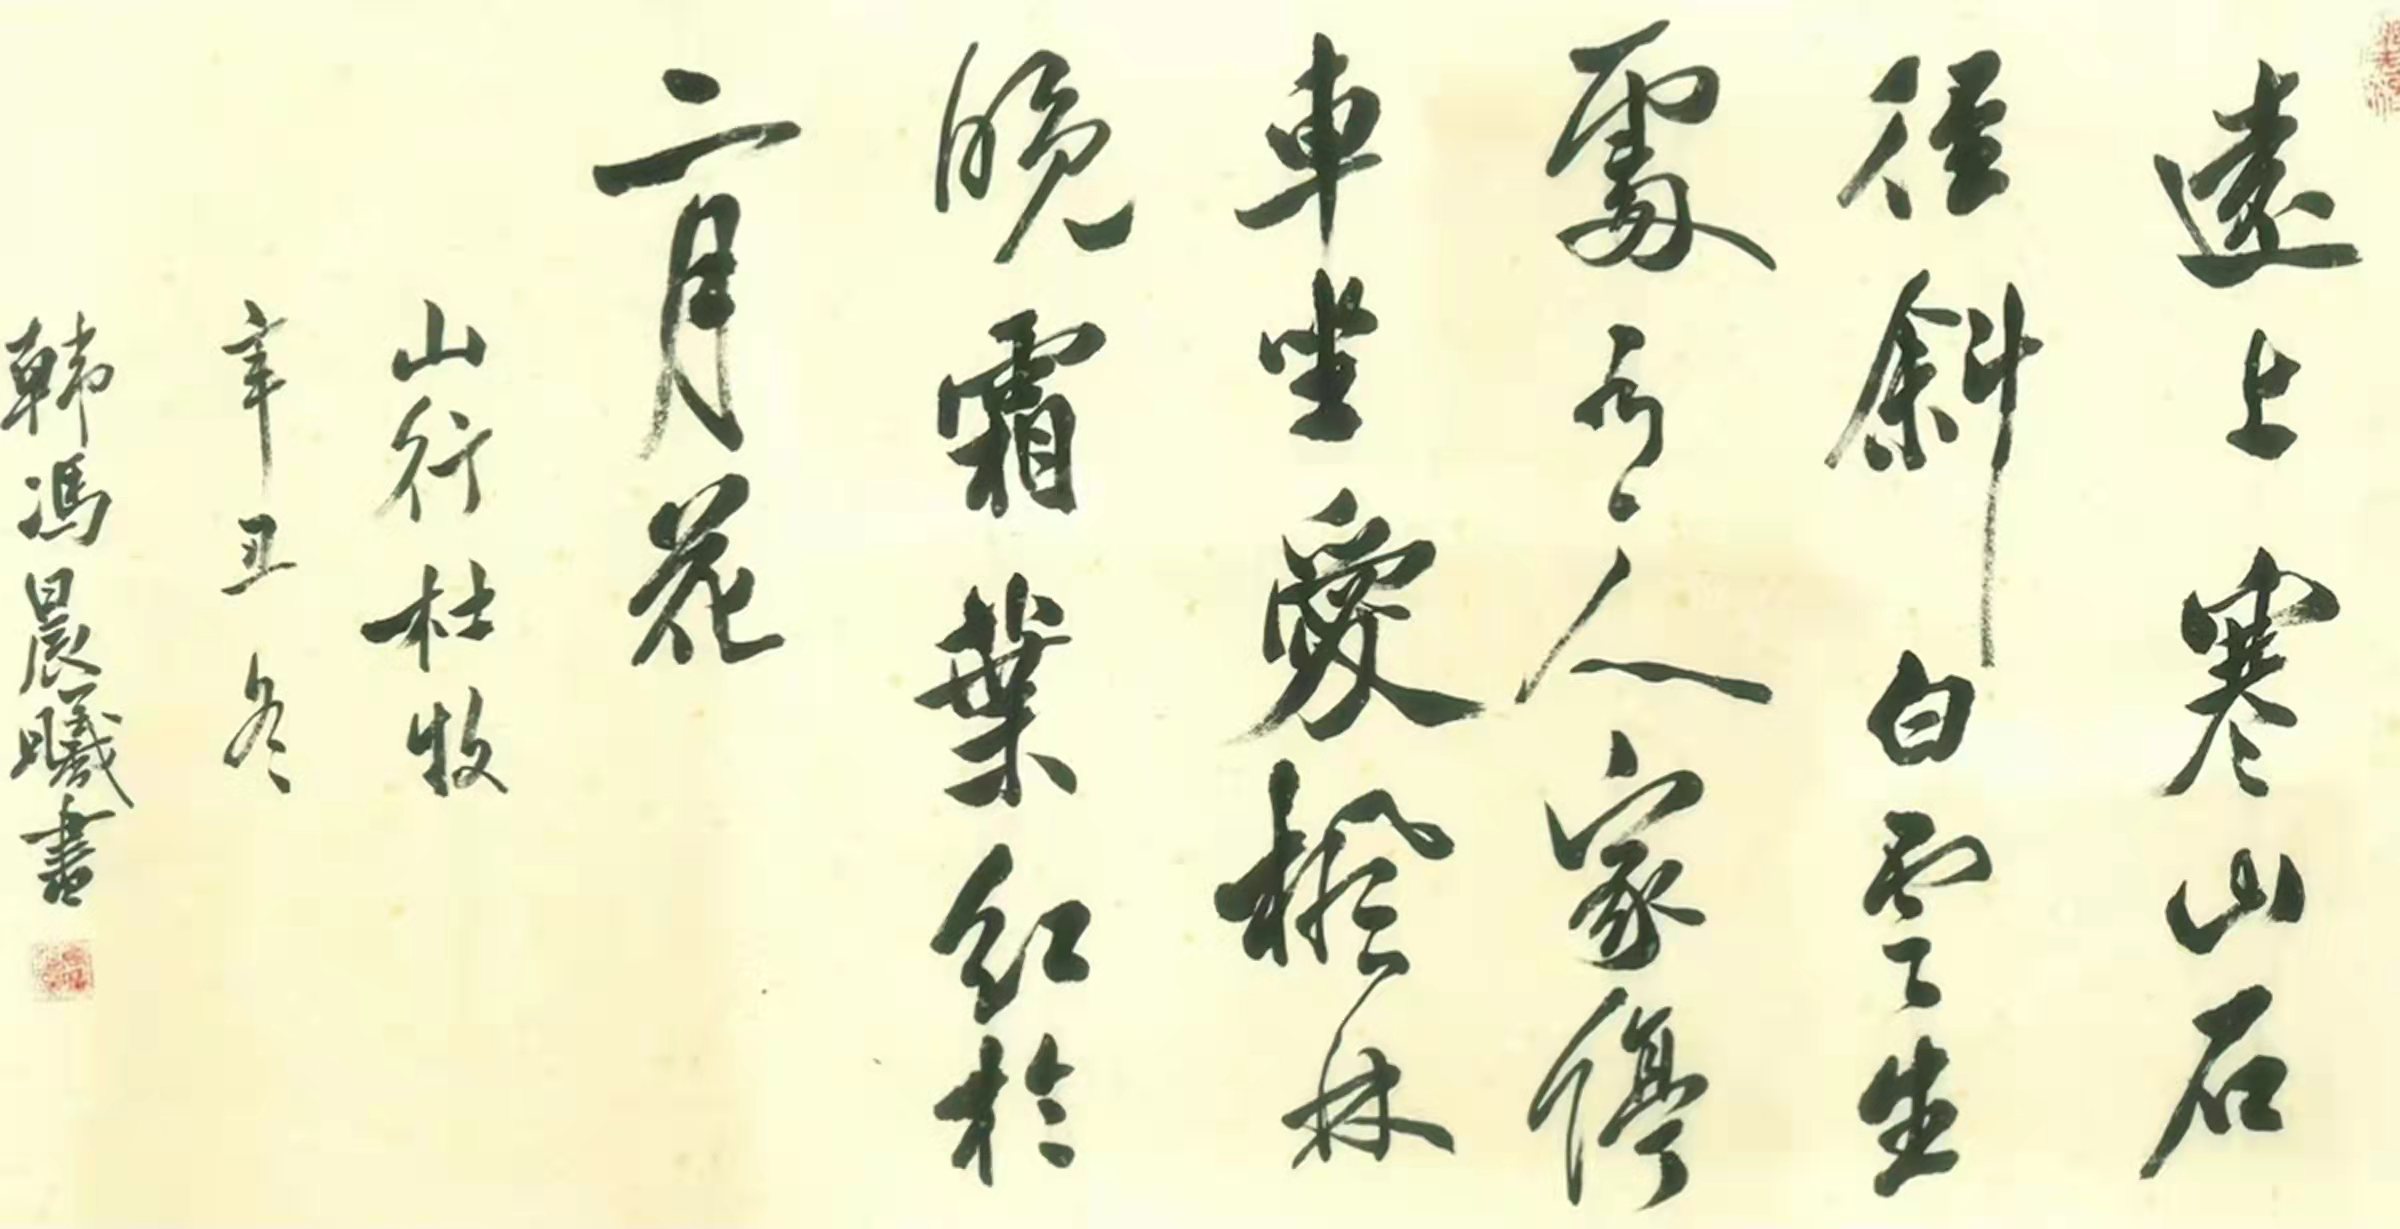 遠上寒山石
徑斜白雲生
處有人家停
車坐愛楓林
晚霜葉紅於
二月花
山行杜牧
辛丑冬
韩馮晨曦書